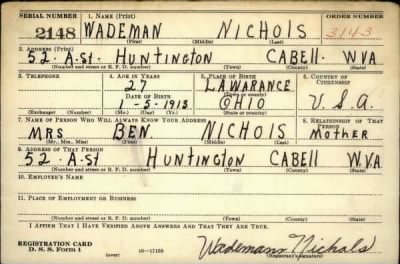 SERIAL NUMBER 1. NAME (Print) ORDER NUMBER
2148 WADEMAN NICHOLS 3143
(First) (Middle) (Last)
2. ADDRESS (Print)
52. A.St. HUNTINGTON CABELL. W.VA
(Number and street or R. F. D. number) (Town) (County) (State)
3. TELEPHONE 4. AGE IN YEARS 5. PLACE OF BIRTH 6. COUNTRY OF CITIZENSHIP
27 LAWARANCE
DATE OF BIRTH (Town or county)
1-5-1913 OHIO U.S.A.
(Exchange) (Number) (Mo.) (Day) (Yr.) (State or country)
7. NAME OF PERSON WHO WILL ALWAYS KNOW YOUR ADDRESS 8. RELATIONSHIP OF THAT PERSON
MRS BEN. NICHOLS MOTHER
(Mr., Mrs., Miss) (First) (Middle) (Last)
9. ADDRESS OF THAT PERSON
52. A-St HUNTINGTON CABELL W.VA
(Number and street or R. F. D. number) (Town) (County) (State)
10. EMPLOYER'S NAME
11. PLACE OF EMPLOYMENT OR BUSINESS
(Number and street or R. F. D. number) (Town) (County) (State)
I AFFIRM THAT I HAVE VERIFIED ABOVE ANSWERS AND THAT THEY ARE TRUE.
REGISTRATION CARD
D. S. S. Form 1 (over) 16—17105 Wademans Nichols
(Registrant's signature)